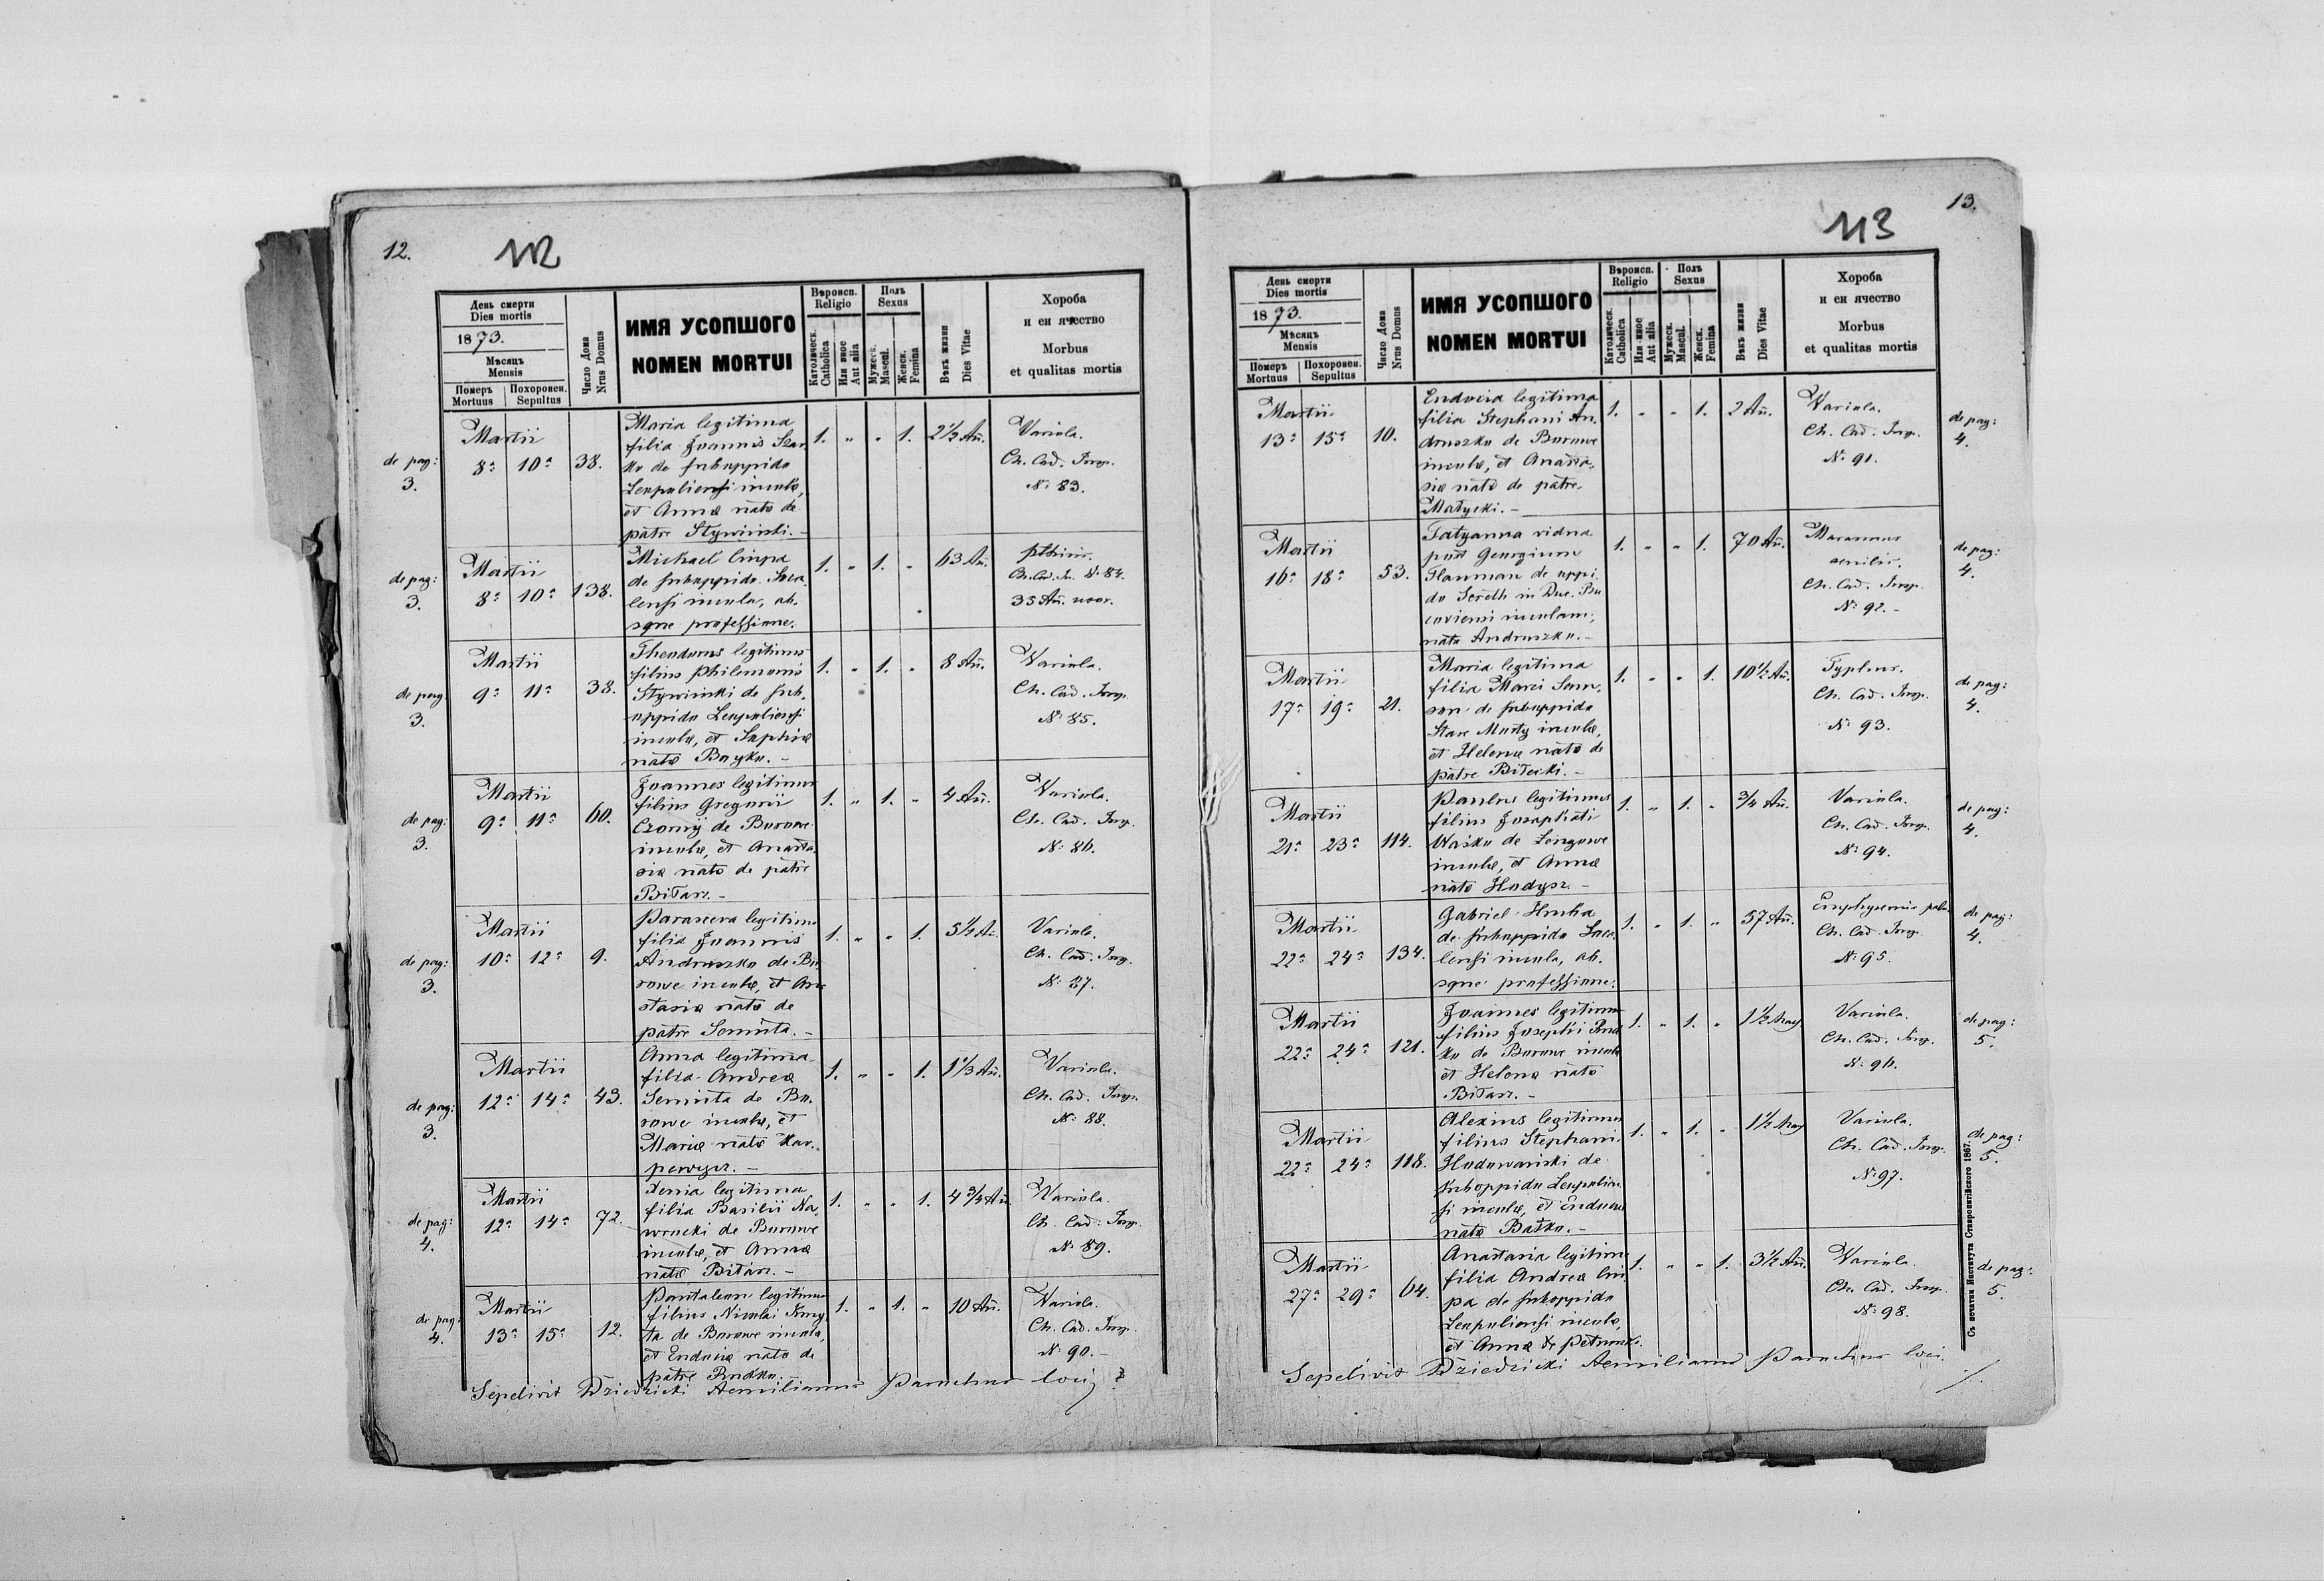 12.
112
День смерти
Dies mortis
1873.
Мѣсяцъ
Mensis
Померъ
Mortuus
Похоронен.
Sepultus
Число Дома
Nrus Domus
ИМЯ УСОПШОГО
NOMEN MORTUI
Вѣроисп.
Religio
Католическ.
Catholica
Или иное
Aut alia
Полъ
Sexus
Мужеск.
Mascul.
Женск.
Femina
Вѣкъ жизни
Dies Vitae
Хороба
и еи ячество
Morbus
et qualitas mortis
de pag:
3.
Martii
8a 10a 38.
Maria legitima
filia Joannis
ko de suboppido
Leopoliensi incolæ,
et Annæ nata de
patre Stywiński.-
1. " " 1. 2½ An.
Variola.
Ch. Cad. Insp.
No 83.
de pag:
3.
Martii
8a 10a 138.
Michael
de suboppido
lensi incola, ab-
sque professione.
1. " 1. " 63 An.
pthisis.
Ch. Cad. In. No 84.
35 An. uxor.
de pag:
3.
Martii
9a 11a 38.
Theodorus legitimus
filius Philemonis
Stywiński de sub-
oppido Leopoliensi
incolæ, et Sophiæ
nata Boyko.-
1. " 1. " 8 An.
Variola.
Ch. Cad. Insp.
No 85.
de pag:
3.
Martii
9a 11a 60.
Joannes legitimus
filius Gregorii
Czornij de Borowe
incolæ, et Anasta-
siæ nata de patre
Biłan.-
1. " 1. " 4 An.
Variola.
Ch. Cad. Insp.
No 86.
de pag:
3.
Martii
10a 12a 9.
Parasceva legitima
filia Joannis
Andruszko de Bo-
rowe incolæ, et Ana
stasiæ nata de
patre Semuta.-
1. " " 1. 5½ An.
Variola.
Ch. Cad. Insp.
No 87.
de pag:
3.
Martii
12a 14a 43.
Anna legitima
filia Andreæ
Semuta de Bo-
rowe incolæ, et
Mariæ nata Kar-
1. " " 1. 1⅓ An.
Variola.
Ch. Cad. Insp.
No 88.
de pag:
4.
Martii
12a 14a 72.
Xenia legitima
filia Basilii Na-
wrocki de Borowe
incolæ, et Annæ
nata Biłan.-
1. " " 1. 4¾ An.
Variola.
Ch. Cad. Insp.
No 89.
de pag:
4.
Martii
13a 15a 12.
Pantaleon legitimus
filius Nicolai
ta de Borowe incolæ,
et Eudociæ nata de
patre Rudko.
1. " 1. " 10 An.
Variola.
Ch. Cad. Insp.
No 90.-
Sepelivit Dziedzicki Aemilianus Parochus loci
13.
113
День смерти
Dies mortis
1873.
Мѣсяцъ
Mensis
Померъ
Mortuus
Похоронен.
Sepultus
Число Дома
Nrus Domus
ИМЯ УСОПШОГО
NOMEN MORTUI
Вѣроисп.
Religio
Католическ.
Catholica
Или иное
Aut alia
Полъ
Sexus
Мужеск.
Mascul.
Женск.
Femina
Вѣкъ жизни
Dies Vitae
Хороба
и еи ячество
Morbus
et qualitas mortis
Martii
13a 15a 10.
Eudocia legitima
filia Stephani An-
druszko de Borowe
incolæ, et Anasta-
siæ nata de patre
Matycki.-
1. " " 1. 2 An.
Variola.
Ch. Cad. Insp.
No 91.
de pag:
4.
Martii
16a 18a 53.
Tatyanna vidua
post Georgium
Flauman de oppi-
do Sereth in Duc. Bu
coviensi incolam,
nata Andruszko.-
1. " " 1. 70 An.
Marasmus
senilis.
Ch. Cad. Insp.
No 92.-
de pag:
4.
Martii
17a 19a 21.
Maria legitima
filia Marci Sam-
son de suboppido
Stare Mosty incolæ,
et Helenæ nata de
patre Bilecki.-
1. " " 1. 10½ An.
Typhus.
Ch. Cad. Insp.
No 93.
de pag:
4.
Martii
21a 23a 114.
Paulus legitimus
filius Josaphati
Waśko de Longowe
incolæ, et Annæ
nata Hodysz.-
1. " 1. " ¾ An.
Variola.
Ch. Cad. Insp.
No 94.
de pag:
4.
Martii
22a 24a 134.
Gabriel Hruba
de suboppido
lensi incola, ab-
sque professione.
1. " 1. " 57 An.
Emphysemis pulm.
Ch. Cad. Insp.
No 95.
de pag:
4.
Martii
22a 24a 121.
Joannes legitimus
filius Josephi Rud
ko de Borowe incolæ
et Helenæ nata
Biłan.-
1. " 1. " 1½
Variola.
Ch. Cad. Insp.
No 96.
de pag:
5.
Martii
22a 24a 118.
Alexius legitimus
filius Stephani
Hodowański de
suboppido Leopolien
si incolæ, et Eudociæ
nata Batko.-
1. " 1. " 1½
Variola.
Ch. Cad. Insp.
No 97.
de pag:
5.
Martii
27a 29a 64.
Anastasia legitima
filia Andreæ
pa de suboppido
Leopoliensi incolæ,
et Annæ
1. " " 1. 3½ An.
Variola.
Ch. Cad. Insp.
No 98.
de pag:
5.
Sepelivit Dziedzicki Aemilianus Parochus loci.
Съ печатни Института Ставропигійского 1867.